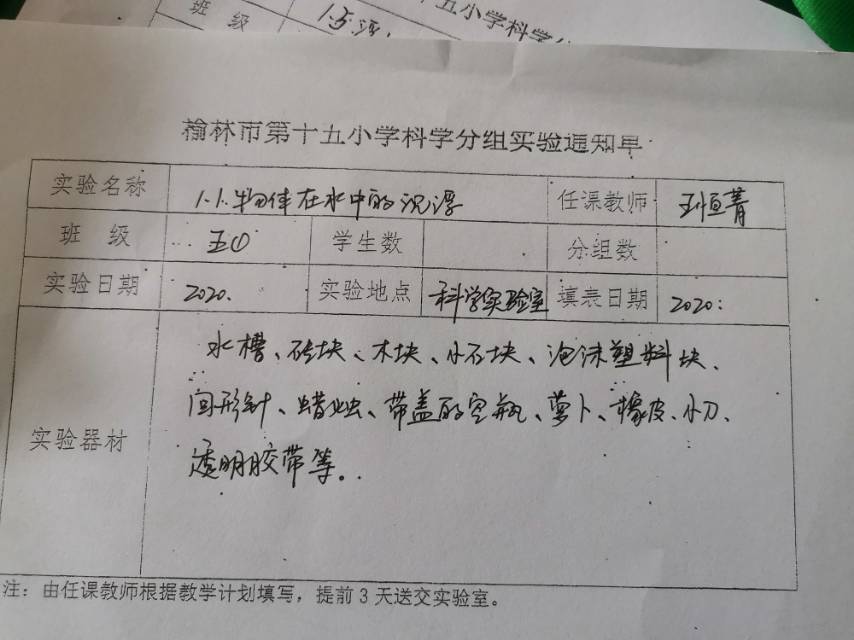 班 级
1.5.
五小学科学分
榆林市第十五小学科学分组实验通知单
实验名称 1.1.物体在水中的沉浮 任课教师
班 级 五① 学生数 分组数
实验日期 2020. 实验地点 科学实验室 填表日期 2020:
水槽、砖块、木块、小石块、泡沫塑料块、
实验器材 回形针、蜡烛、带盖的空瓶、萝卜、橡皮、小刀、
透明胶带等。
注：由任课教师根据教学计划填写，提前 3 天送交实验室。